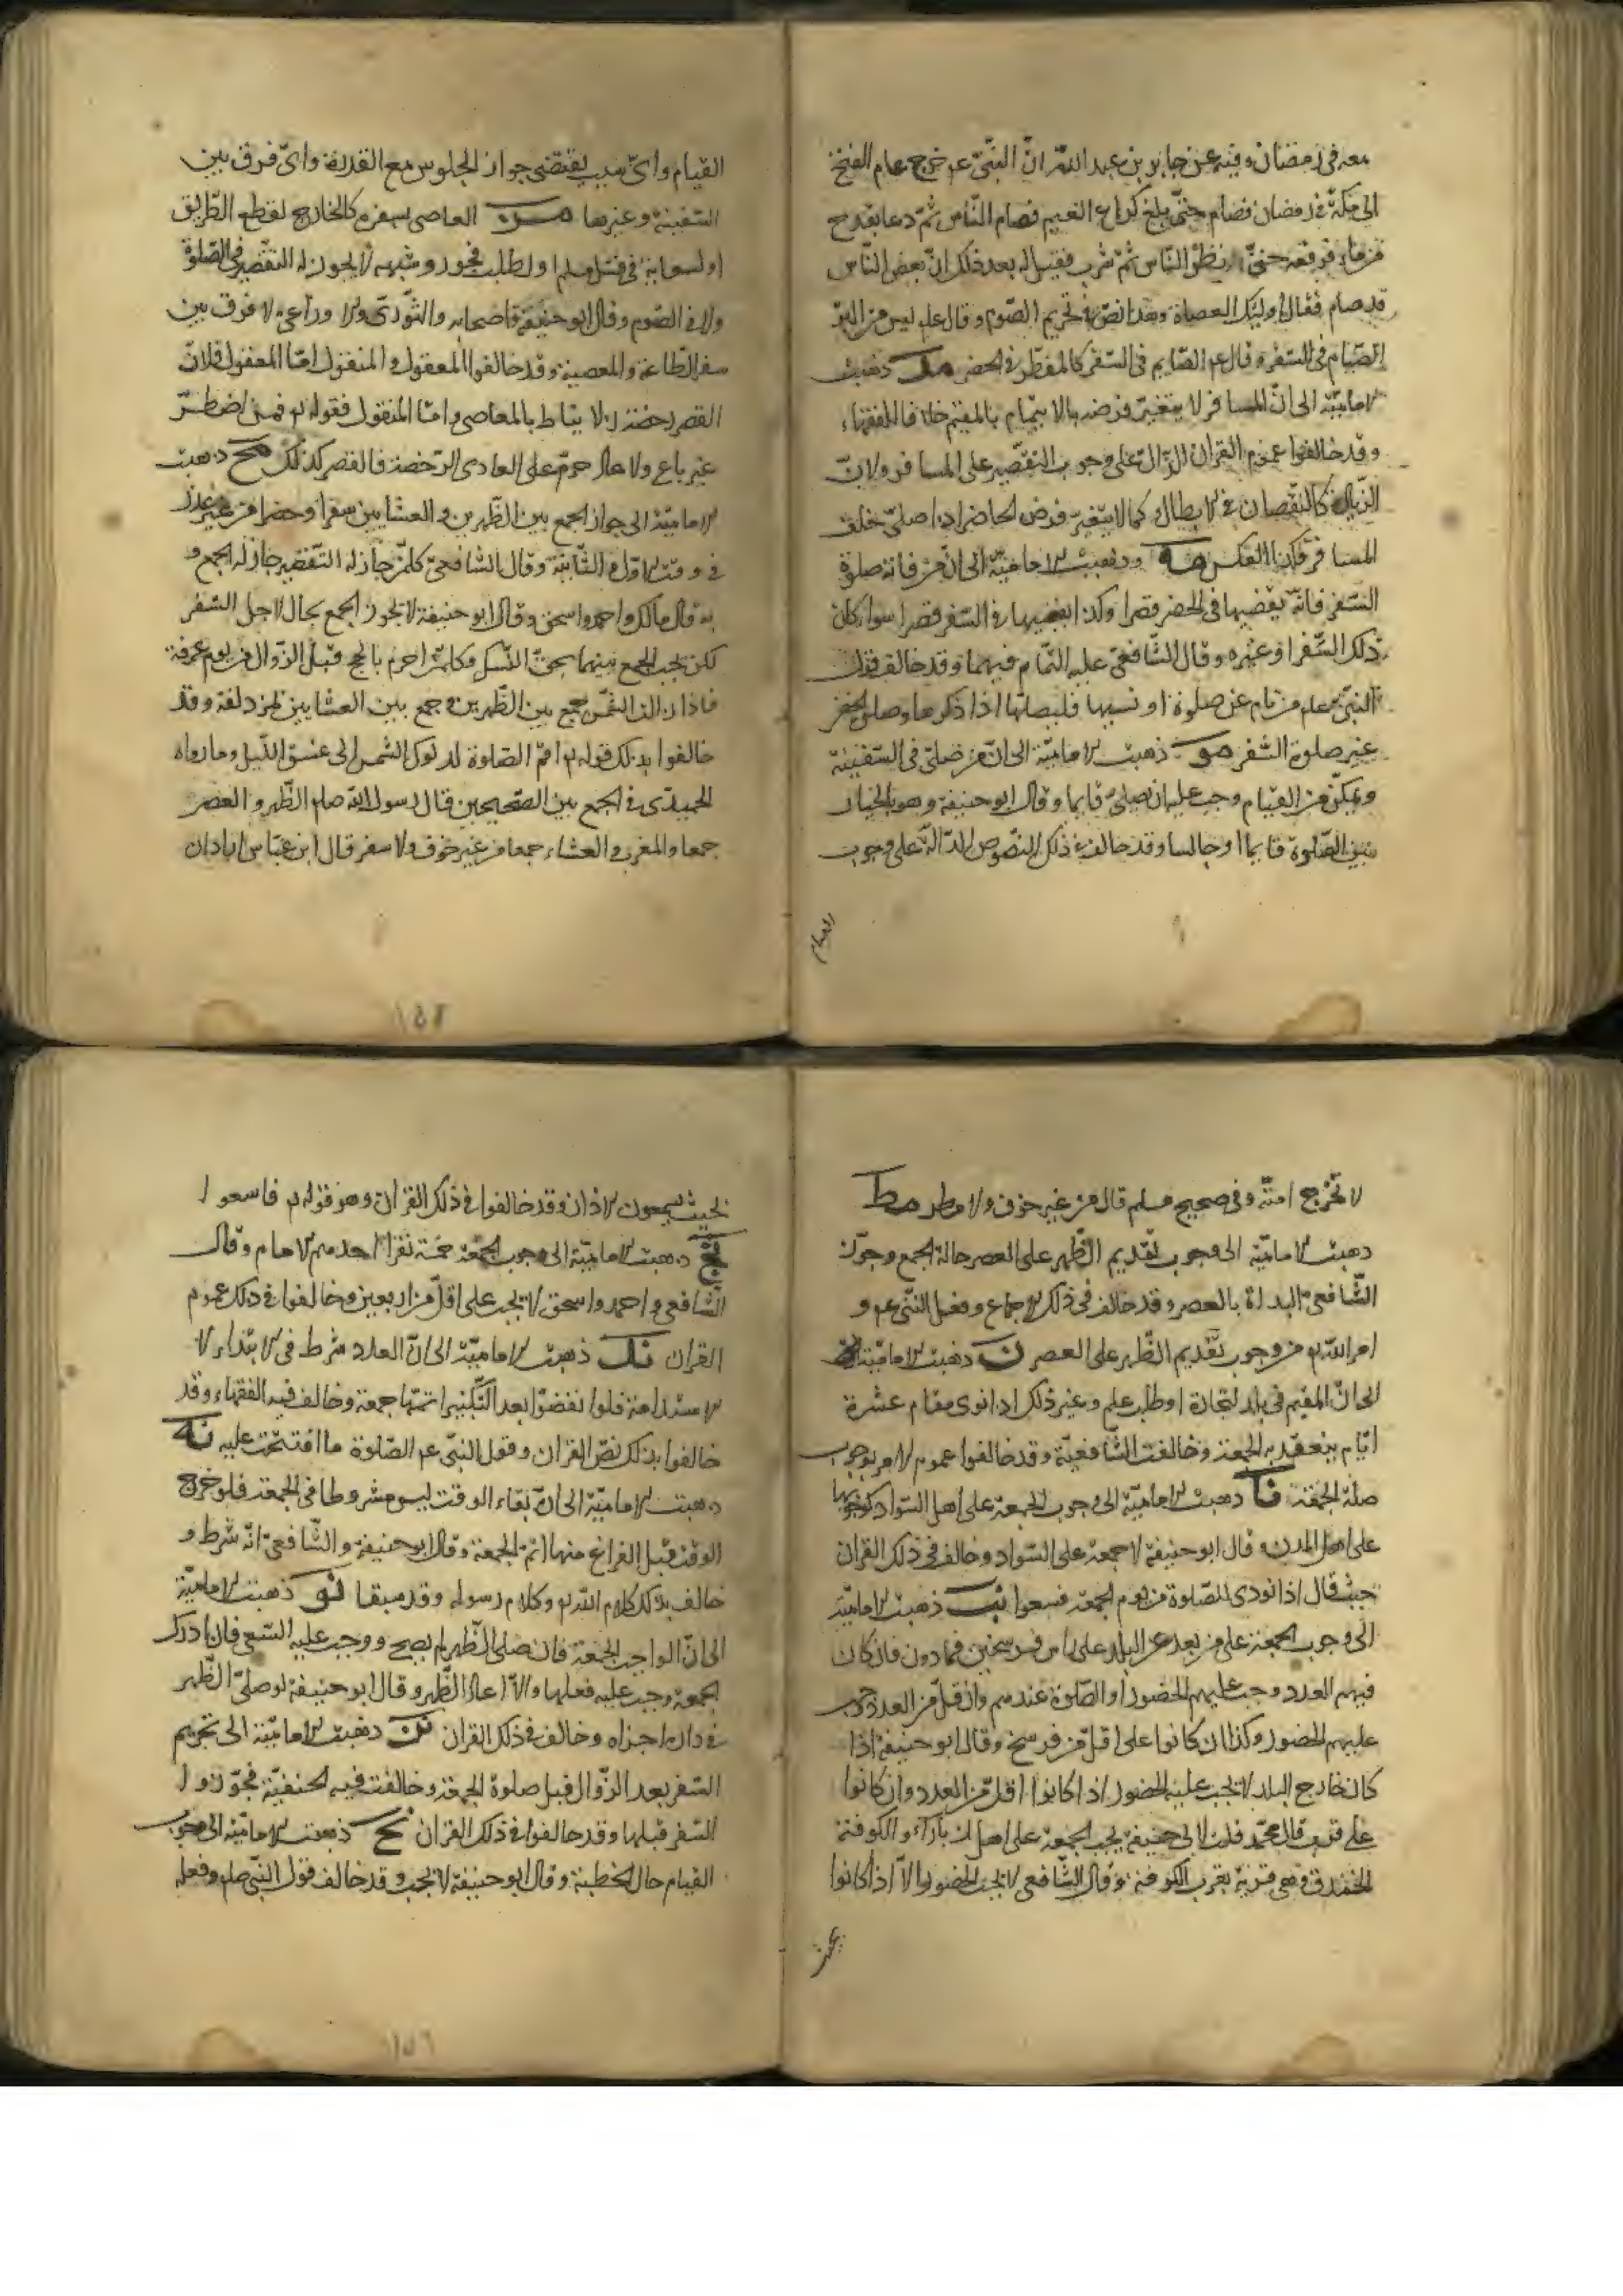 معه فى رمضان وفيه عن جابر بن عبد الله ان النبى عم خرج عام الفتح
الى مكة فى رمضان فصام حتى بلغ كراع الغميم فصام الناس ثم دعا بقدح
من ماء فرفعه حتى نظر الناس ثم شرب فقيل له بعد ذلك ان بعض الناس
قد صام فقال اوليك العصاة وهذا نص فى تحريم الصوم وقال علم ليس من البر
الصيام فى السفر وقال عم الصايم فى السفر كالمفطر فى الحضر مد ذهبت
الامامية الى ان المسافر لا يتغير فرضه بالايتمام بالمقيم خلافا للفقهاء
وقد خالفوا عموم القران الدال على وجوب التقصير على المسافر ولان
الزيادة كالنقصان فى الابطال وكما لا يتغير فرض الحاضر اذا صلى خلف
المسافر فكذا العكس مه وذهبت الامامية الى ان من فاته صلوة
السفر فانه يقضيها فى الحضر قصرا وكذا يقضيها فى السفر قصرا سوا كان
ذلك السفر او غيره وقال الشافعى عليه التمام فيهما وقد خالف قول
النبى صلم من نام عن صلوة او نسيها فليصلها اذا ذكرها وصلوة الحضر
غير صلوة السفر مو ذهبت الامامية الى ان من صلى فى السفينة
وتمكن من القيام وجب عليه ان يصلى قايما وقال ابو حنيفة وهو بالخيار
بين الصلوة قايما او جالسا وقد خالف فى ذلك النصوص الدالة على وجوب
القيام
القيام واى سبب يقتضى جواز الجلوس مع القدرة واى فرق بين
السفينة وغيرها مز العاصى بسفره كالخارج لقطع الطريق
او لسعاية فى قتل مسلم او لطلب فجور وشبهه لا يجوز له التقصير فى الصلوة
ولا فى الصوم وقال ابو حنيفة واصحابه والثورى والاوزاعى لا فرق بين
سفر الطاعة والمعصية وقد خالفوا المعقول والمنقول اما المعقول فلان
القصر رخصة فلا يناط بالمعاصى واما المنقول فقوله تع فمن اضطر
غير باغ ولا عاد حرم على العادى الرخصة فالقصر كذلك مح ذهبت
الامامية الى جواز الجمع بين الظهرين والعشايين سفرا وحضرا من غير عذر
فى وقت الاولى والثانية وقال الشافعى كل من جاز له التقصير جاز له الجمع و
به قال مالك واحمد واسحق وقال ابو حنيفة لا يجوز الجمع بحال لاجل السفر
لكن يجب الجمع بينهما بحق النسك وكل من احرم بالحج قبل الزوال من يوم عرفة
فاذا زالت الشمس جمع بين الظهرين وجمع بين العشايين بمزدلفة وقد
خالفوا بذلك قوله تع اقم الصلوة لدلوك الشمس الى غسق الليل وما رواه
الحميدى فى الجمع بين الصحيحين قال رسول الله صلم الظهر والعصر
جمعا والمغرب والعشاء جمعا من غير خوف ولا سفر قال ابن عباس اراد ان
١٥٥
لا تحرج امته وفى صحيح مسلم قال من غير خوف ولا مطر مط
ذهبت الامامية الى وجوب تقديم الظهر على العصر حالة الجمع وجوز
الشافعى البداة بالعصر وقد خالف فى ذلك الاجماع وفعل النبى عم و
امر الله تع من وجوب تقديم الظهر على العصر ن ذهبت الامامية
الى ان المقيم فى بلد لتجارة او طلب علم وغير ذلك اذا نوى مقام عشرة
ايام ينعقد به الجمعة وخالفت الشافعية وقد خالفوا عموم الامر بوجوب
صلة الجمعة نا ذهبت الامامية الى وجوب الجمعة على اهل السواد كوجوبها
على اهل المدن وقال ابو حنيفة لا جمعة على السواد وخالف فى ذلك القران
حيث قال اذا نودى للصلوة من يوم الجمعة فاسعوا نب ذهبت الامامية
الى وجوب الجمعة على من بعد عن البلد على راس فرسخين فما دون فان كان
فيهم العدد وجب عليهم الحضور او الصلوة عندهم وان قل من العدد وجب
عليهم الحضور وكذا ان كانوا على اقل من فرسخ وقال ابو حنيفة اذا
كان خارج البلد لا يجب عليه الحضور اذا كانوا اقل من العدد وان كانوا
على قرب قال محمد قلت لابى حنيفة يجب الجمعة على اهل بازاء والكوفة
الخندق وهى قرية بقرب الكوفة وقال الشافعى لا يجب الحضور الا اذا كانوا
بحيث
بحيث يسمعون الاذان وقد خالفوا فى ذلك القران وهو قوله تع فاسعوا
نج ذهبت الامامية الى وجوب الجمعة خمسة نفر احدهم الامام وقال
الشافعى واحمد واسحق لا يجب على اقل من اربعين وخالفوا فى ذلك عموم
القران ند ذهبت الامامية الى ان العدد شرط فى الابتداء لا
الاستدامة فلو انفضوا بعد التكبير اتمها جمعة وخالف فيه الفقهاء وقد
خالفوا بذلك نص القران وقول النبى عم الصلوة ما افتتحت عليه نه
ذهبت الامامية الى ان بقاء الوقت ليس مشروطا فى الجمعة فلو خرج
الوقت قبل الفراغ منها اتم الجمعة وقال ابو حنيفة والشافعى انه شرط و
خالف بذلك كلام الله تع وكلام رسوله وقد سبقا نو ذهبت الامامية
الى ان الواجب الجمعة فان صلى الظهر لم يصح ووجب عليه السعى فان ادرك
الجمعة وجب عليه فعلها والا اعاد الظهر وقال ابو حنيفة لو صلى الظهر
فى داره اجزاه وخالف فى ذلك القران نز ذهبت الامامية الى تحريم
السفر بعد الزوال قبل صلوة الجمعة وخالفت فيه الحنفية فجوزوا
السفر قبلها وقد خالفوا فى ذلك القران نح ذهبت الامامية الى وجوب
القيام حال الخطبة وقال ابو حنيفة لا يجب وقد خالف قول النبى صلم وفعله
١٥٦